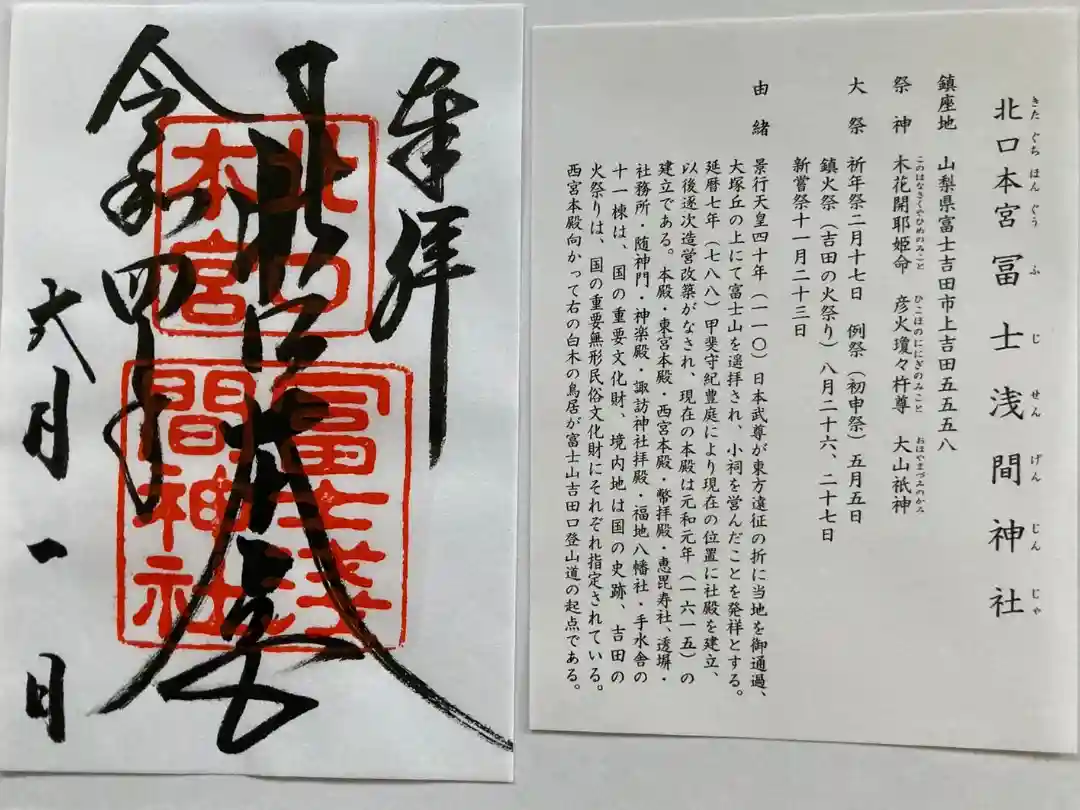 奉拝
北口
本宮
冨士浅
間神社
令和四年
六月一日
きたぐちほんぐうふじせんげんじんじゃ
北口本宮冨士浅間神社
鎮座地 山梨県富士吉田市上吉田五五五八
このはなさくやひめのみこと ひこほのににぎのみこと おほやまづみのかみ
祭神 木花開耶姫命 彦火瓊々杵尊 大山祇神
大祭 祈年祭二月十七日 例祭(初申祭)五月五日
鎮火祭(吉田の火祭り)八月二十六、二十七日
新嘗祭十一月二十三日
由緒 景行天皇四十年(一一〇)日本武尊が東方遠征の折に当地を御通過、
大塚丘の上にて富士山を遥拝され、小祠を営んだことを発祥とする。
延暦七年(七八八)甲斐守紀豊庭により現在の位置に社殿を建立、
以後逐次造営改築がなされ、現在の本殿は元和元年(一六一五)の
建立である。本殿・東宮本殿・西宮本殿・幣拝殿・恵毘寿社、透塀・
社務所・随神門・神楽殿・諏訪神社拝殿・福地八幡社・手水舎の
十一棟は、国の重要文化財、境内地は国の史跡、吉田の
火祭りは、国の重要無形民俗文化財にそれぞれ指定されている。
西宮本殿向かって右の白木の鳥居が富士山吉田口登山道の起点である。